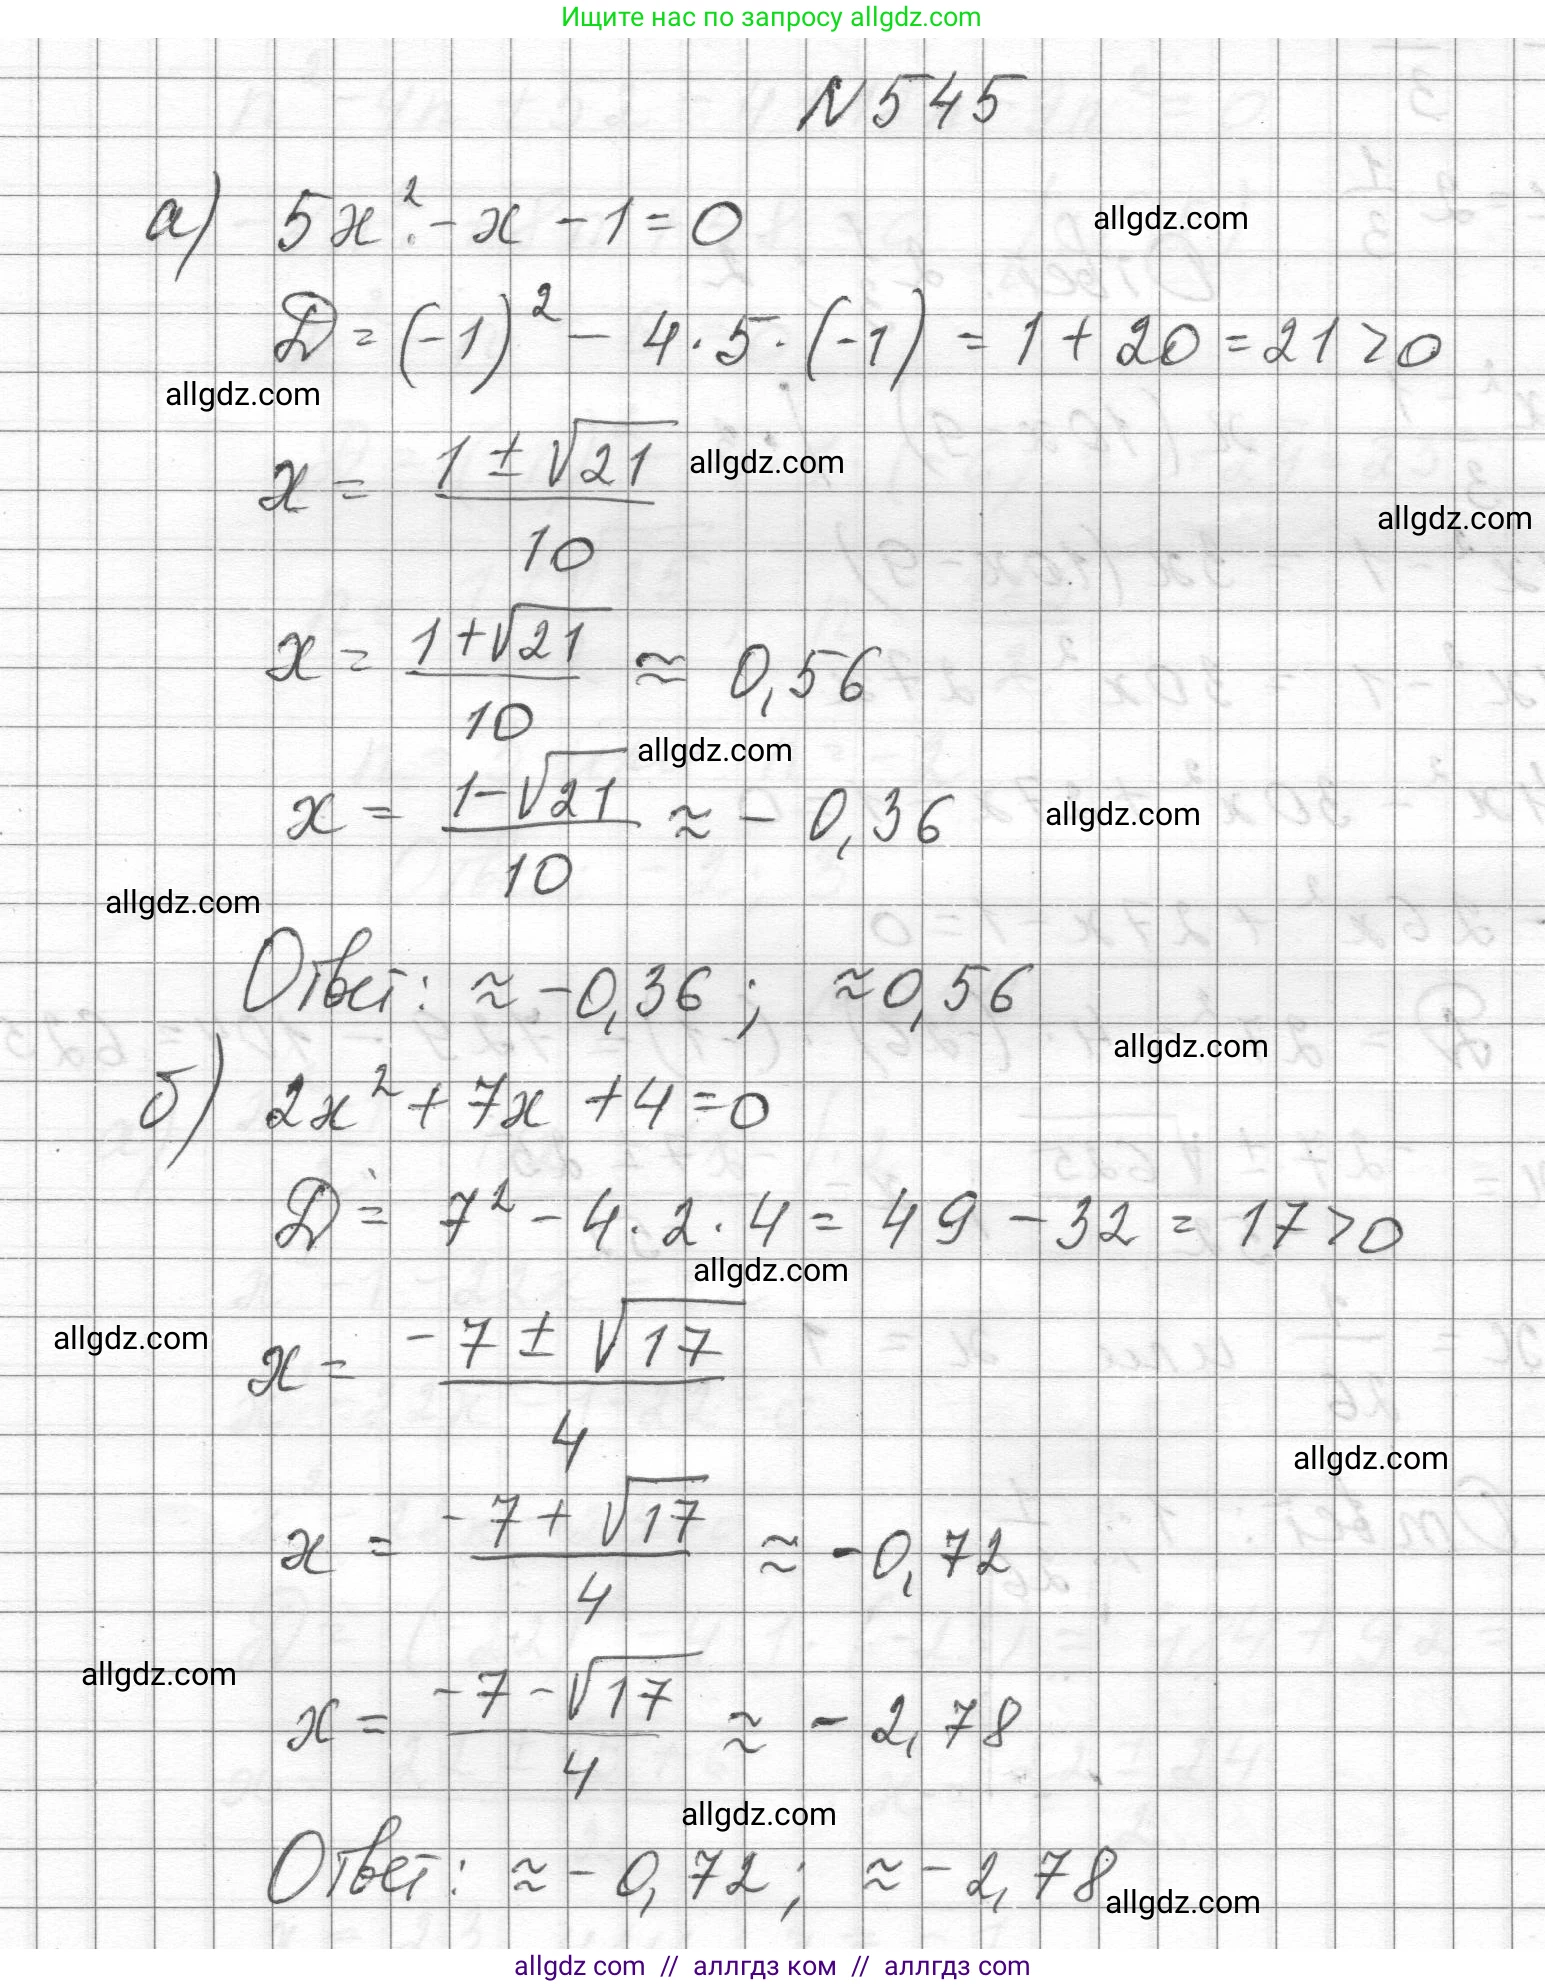 Ищите нас по запросу allgdz.com
N 545
а) 5x² - x - 1 = 0
allgdz.com
D = (-1)² - 4 · 5 · (-1) = 1 + 20 = 21 > 0
allgdz.com
x = (1 ± √21) / 10
allgdz.com
allgdz.com
x = (1 + √21) / 10 ≈ 0,56
allgdz.com
x = (1 - √21) / 10 ≈ - 0,36
allgdz.com
allgdz.com
Ответ: ≈ -0,36 ; ≈ 0,56
allgdz.com
б) 2x² + 7x + 4 = 0
D = 7² - 4 · 2 · 4 = 49 - 32 = 17 > 0
allgdz.com
allgdz.com
x = (-7 ± √17) / 4
allgdz.com
x = (-7 + √17) / 4 ≈ -0,72
allgdz.com
x = (-7 - √17) / 4 ≈ - 2,78
allgdz.com
Ответ: ≈ - 0,72 ; ≈ - 2,78
allgdz.com
allgdz com // аллгдз ком // аллгдз com